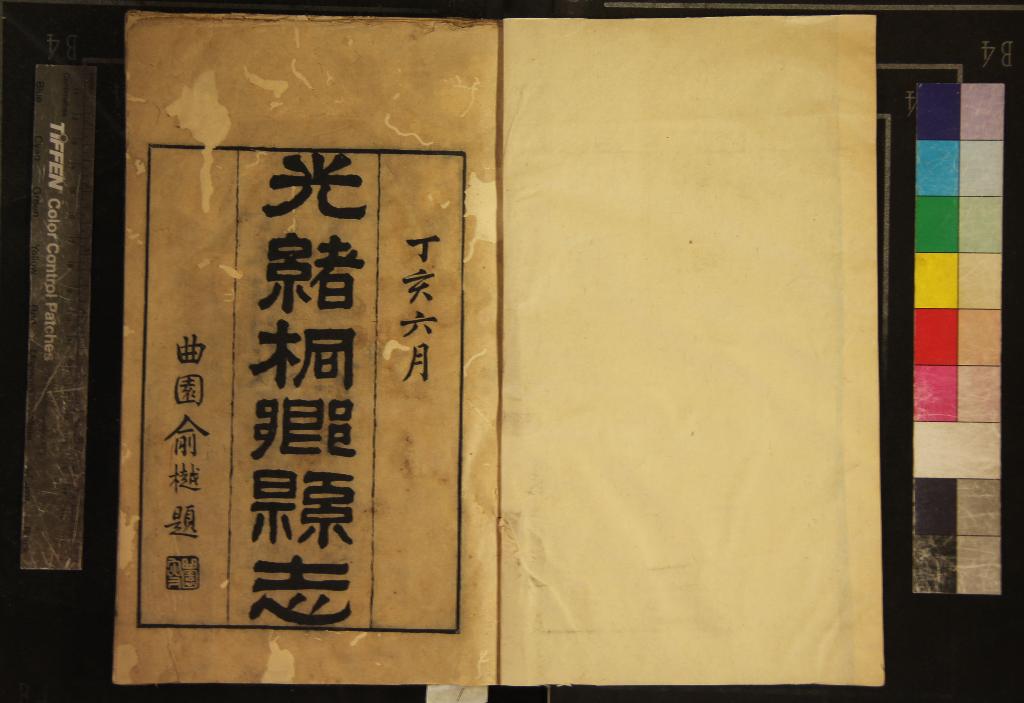 丁亥六月
光緒桐鄉縣志
曲園俞樾題
TIFFEN Color Control Patches
B4
B4